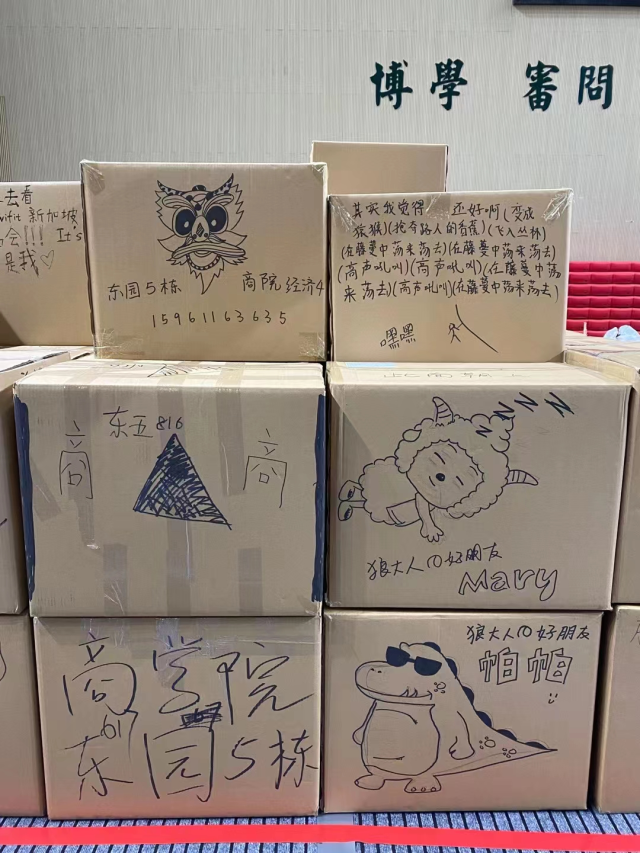 博學 審問
去看
vifit 新加坡
会!!! It's
是我♡
东园5栋 商院 经济4
15961163635
其实我觉得 还好啊(变成
猴猴)(抢夺路人的香蕉)(飞入丛林)
(在藤蔓中荡来荡去)(在藤蔓中荡来荡去)
(高声吼叫)(高声吼叫)(在藤蔓中荡
来荡去)(高声吼叫)(在藤蔓中荡来荡去)
嘿嘿
东五816
商 商
ZZZZ
狼大人の好朋友
Mary
商学院
东园5栋
619
狼大人の好朋友
帕帕